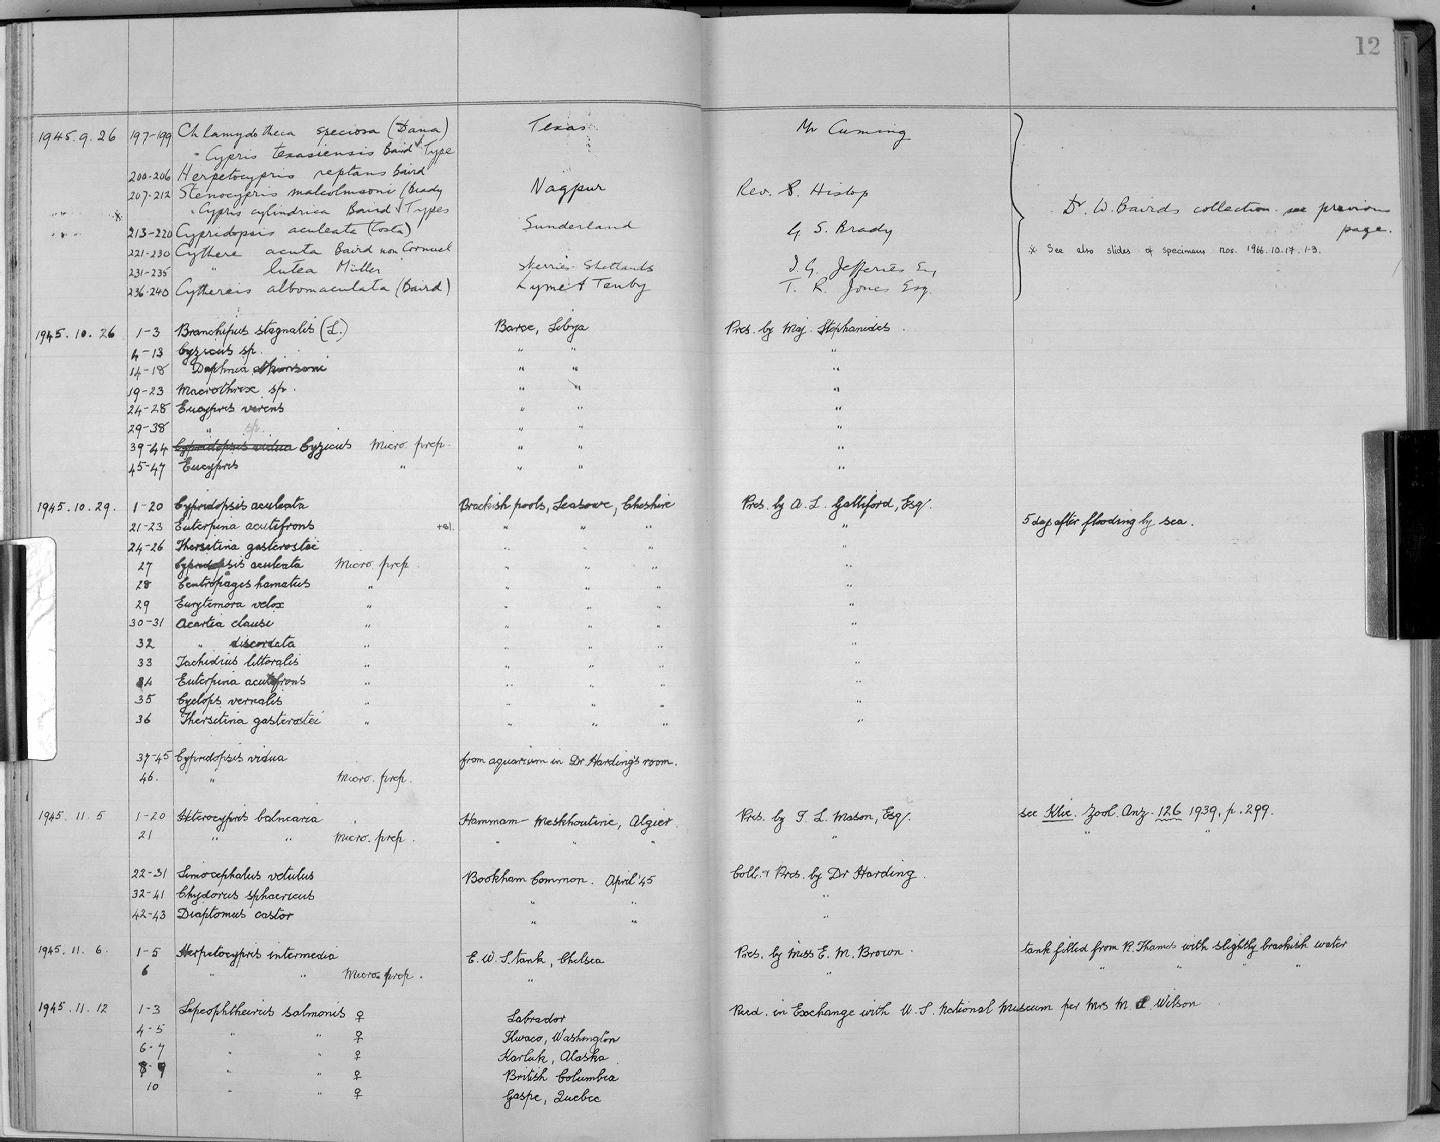 12
1945.9.26 197-199 Chlamydotheca speciosa (Dana) Texas Mr Cuming
= Cypris texasiensis Baird Type
200-206 Herpetocypris reptans Baird
207-212 Stenocypris malcolmsoni (Brady Nagpur Rev. S. Hislop
* = Cypris cylindrica Baird Types Dr W. Baird's collection. see previous page.
213-220 Cypridopsis aculeata (Costa) Sunderland G. S. Brady
221-230 Cythere acuta Baird non Cornuel * See also slides of specimens nos. 1966.10.17.1-3.
231-235 " lutea Müller Skerries - Shetlands J. G. Jefferies Esq
236-240 Cythereis albomaculata (Baird) Lyme & Tenby T. R. Jones Esq.
1945.10.26 1-3 Branchipus stagnalis (L.) Barce, Libya Pres. by Maj. Stephanides.
4-13 Cyzicus sp. " " "
14-18 Daphnia atkinsoni " " "
19-23 Macrothrix sp. " " "
24-28 Eucypris virens " " "
29-38 " sp. " " "
39-44 Cypridopsis vidua Cyzicus Micro. prep. " " "
45-47 Eucypris " " " "
1945.10.29. 1-20 Cypridopsis aculeata Brackish pools, Leasowe, Cheshire Pres. by A. L. Galliford, Esq.
21-23 Euterpina acutifrons " " " " 5 days after flooding by sea.
24-26 Thersitina gasterostei " " " "
27 Cypridopsis aculeata Micro. prep. " " " "
28 Centropages hamatus " " " " "
29 Eurytemora velox " " " " "
30-31 Acartia clausi " " " " "
32 " discordata " " " " "
33 Tachidius littoralis " " " " "
34 Euterpina acutifrons " " " " "
35 Cyclops vernalis " " " " "
36 Thersitina gasterostei " " " " "
37-45 Cypridopsis vidua from aquarium in Dr Harding's room.
46. " Micro. prep.
1945.11.5 1-20 Heterocypris balnearia Hammam-Meskhoutine, Algier. Pres. by F. L. Mason, Esq. see Klie. Zool. Anz. 126 1939, p. 299.
21 " " Micro. prep. " " " " " "
22-31 Simocephalus vetulus Bookham Common. April '45 Coll. & Pres. by Dr Harding.
32-41 Chydorus sphaericus " " "
42-43 Diaptomus castor " " "
1945.11.6. 1-5 Herpetocypris intermedia E.W.S. tank, Chelsea Pres. by Miss E. M. Brown. tank filled from R. Thames with slightly brackish water
6 " " Micro. prep. " " " " "
1945.11.12 1-3 Lepeophtheirus salmonis ♀ Labrador Recd. in Exchange with U.S. National Museum per Mrs M. Wilson
4-5 " " ♀ Ilwaco, Washington
6-7 " " ♀ Karluk, Alaska
8-9 " " ♀ British Columbia
10 " " ♀ Gaspe, Quebec